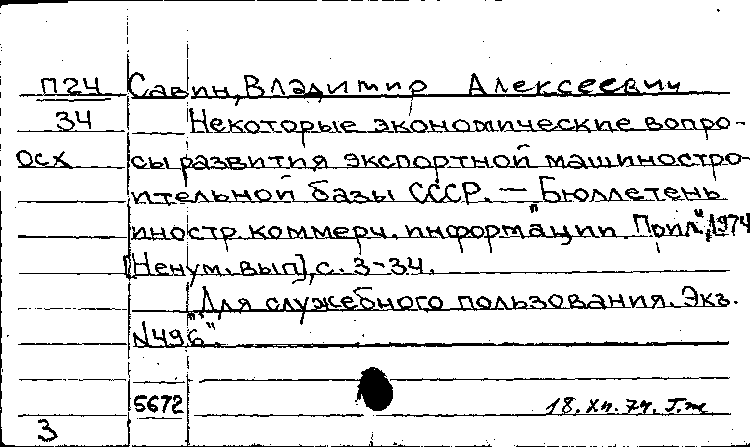 П24 Савин, Владимир Алексеевич
34 Некоторые экономические вопро-
ОСХ сы развития экспортной машиностро-
ительной базы СССР. — "Бюллетень
иностр. коммерч. информации. Прил.", 1974
[Ненум. вып], с. 3-34.
"Для служебного пользования. Экз.
N496".
5672 18.XII.74.
3